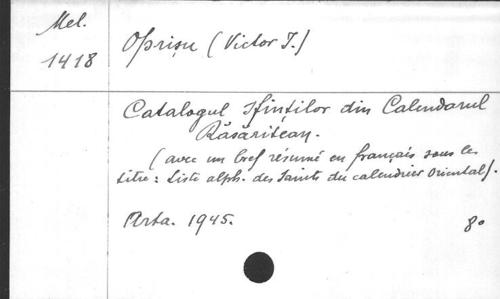 Mel.
1418
Oprişu (Victor I.)
Catalogul Sfinţilor din Calendarul
Răsăritean.
(avec un bref résumé en français sous le
titre: Liste alph. des Saints du calendrier Oriental).
Arta. 1945. 8º